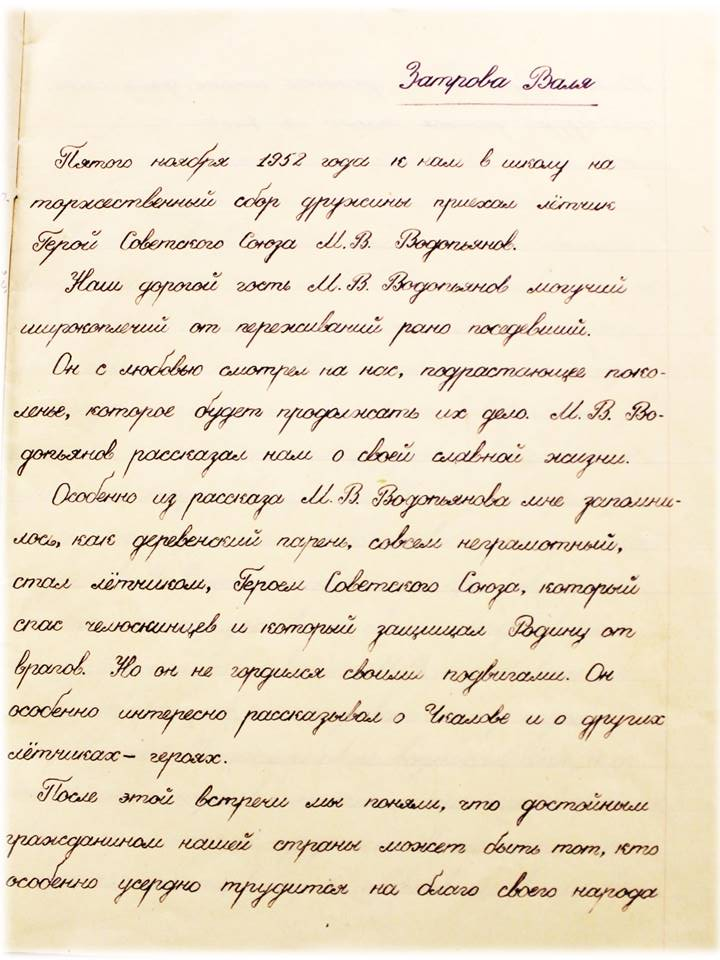 Затрова Валя
Пятого ноября 1952 года к нам в школу на
торжественный сбор дружины приехал лётчик
Герой Советского Союза М. В. Водопьянов.
Наш дорогой гость М. В. Водопьянов могучий
широкоплечий от переживаний рано поседевший.
Он с любовью смотрел на нас, подрастающее поко-
ленье, которое будет продолжать их дело. М. В. Во-
допьянов рассказал нам о своей славной жизни.
Особенно из рассказа М. В. Водопьянова мне запомни-
лось, как деревенский парень, совсем неграмотный,
стал лётчиком, Героем Советского Союза, который
спас челюскинцев и который защищал Родину от
врагов. Но он не гордился своими подвигами. Он
особенно интересно рассказывал о Чкалове и о других
лётчиках – героях.
После этой встречи мы поняли, что достойным
гражданином нашей страны может быть тот, кто
особенно усердно трудится на благо своего народа